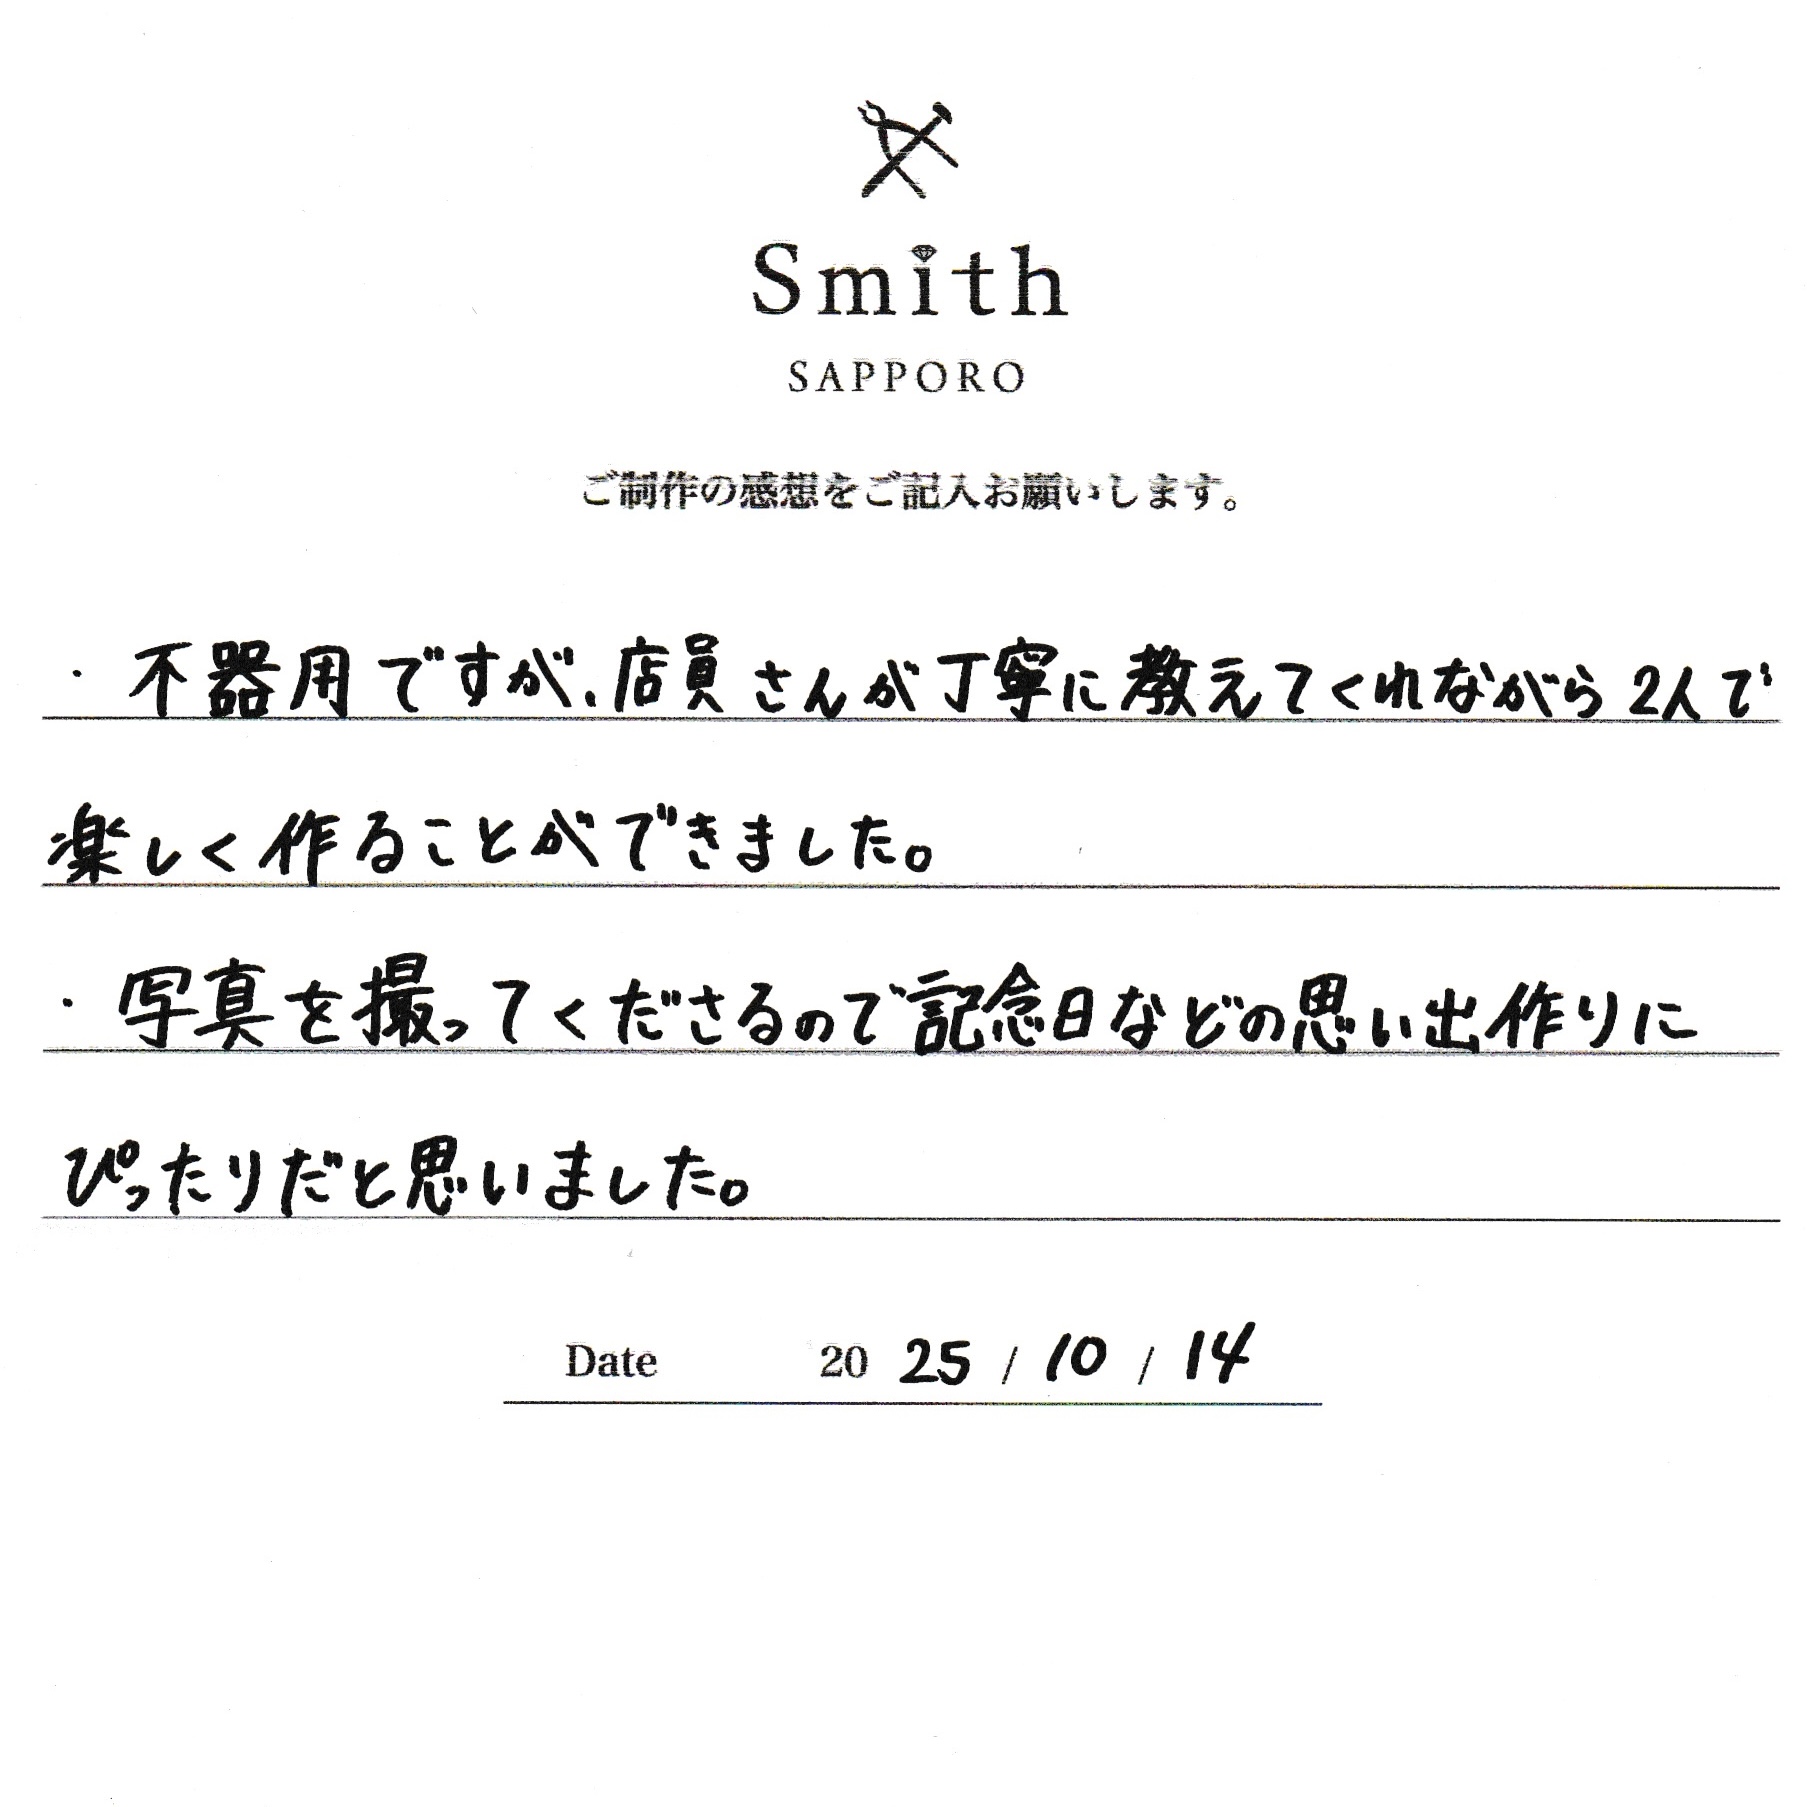 Smith
SAPPORO
ご制作の感想をご記入お願いします。
・不器用ですが、店員さんが丁寧に教えてくれながら2人で
楽しく作ることができました。
・写真を撮ってくださるので記念日などの思い出作りに
ぴったりだと思いました。
Date 2025/10/14